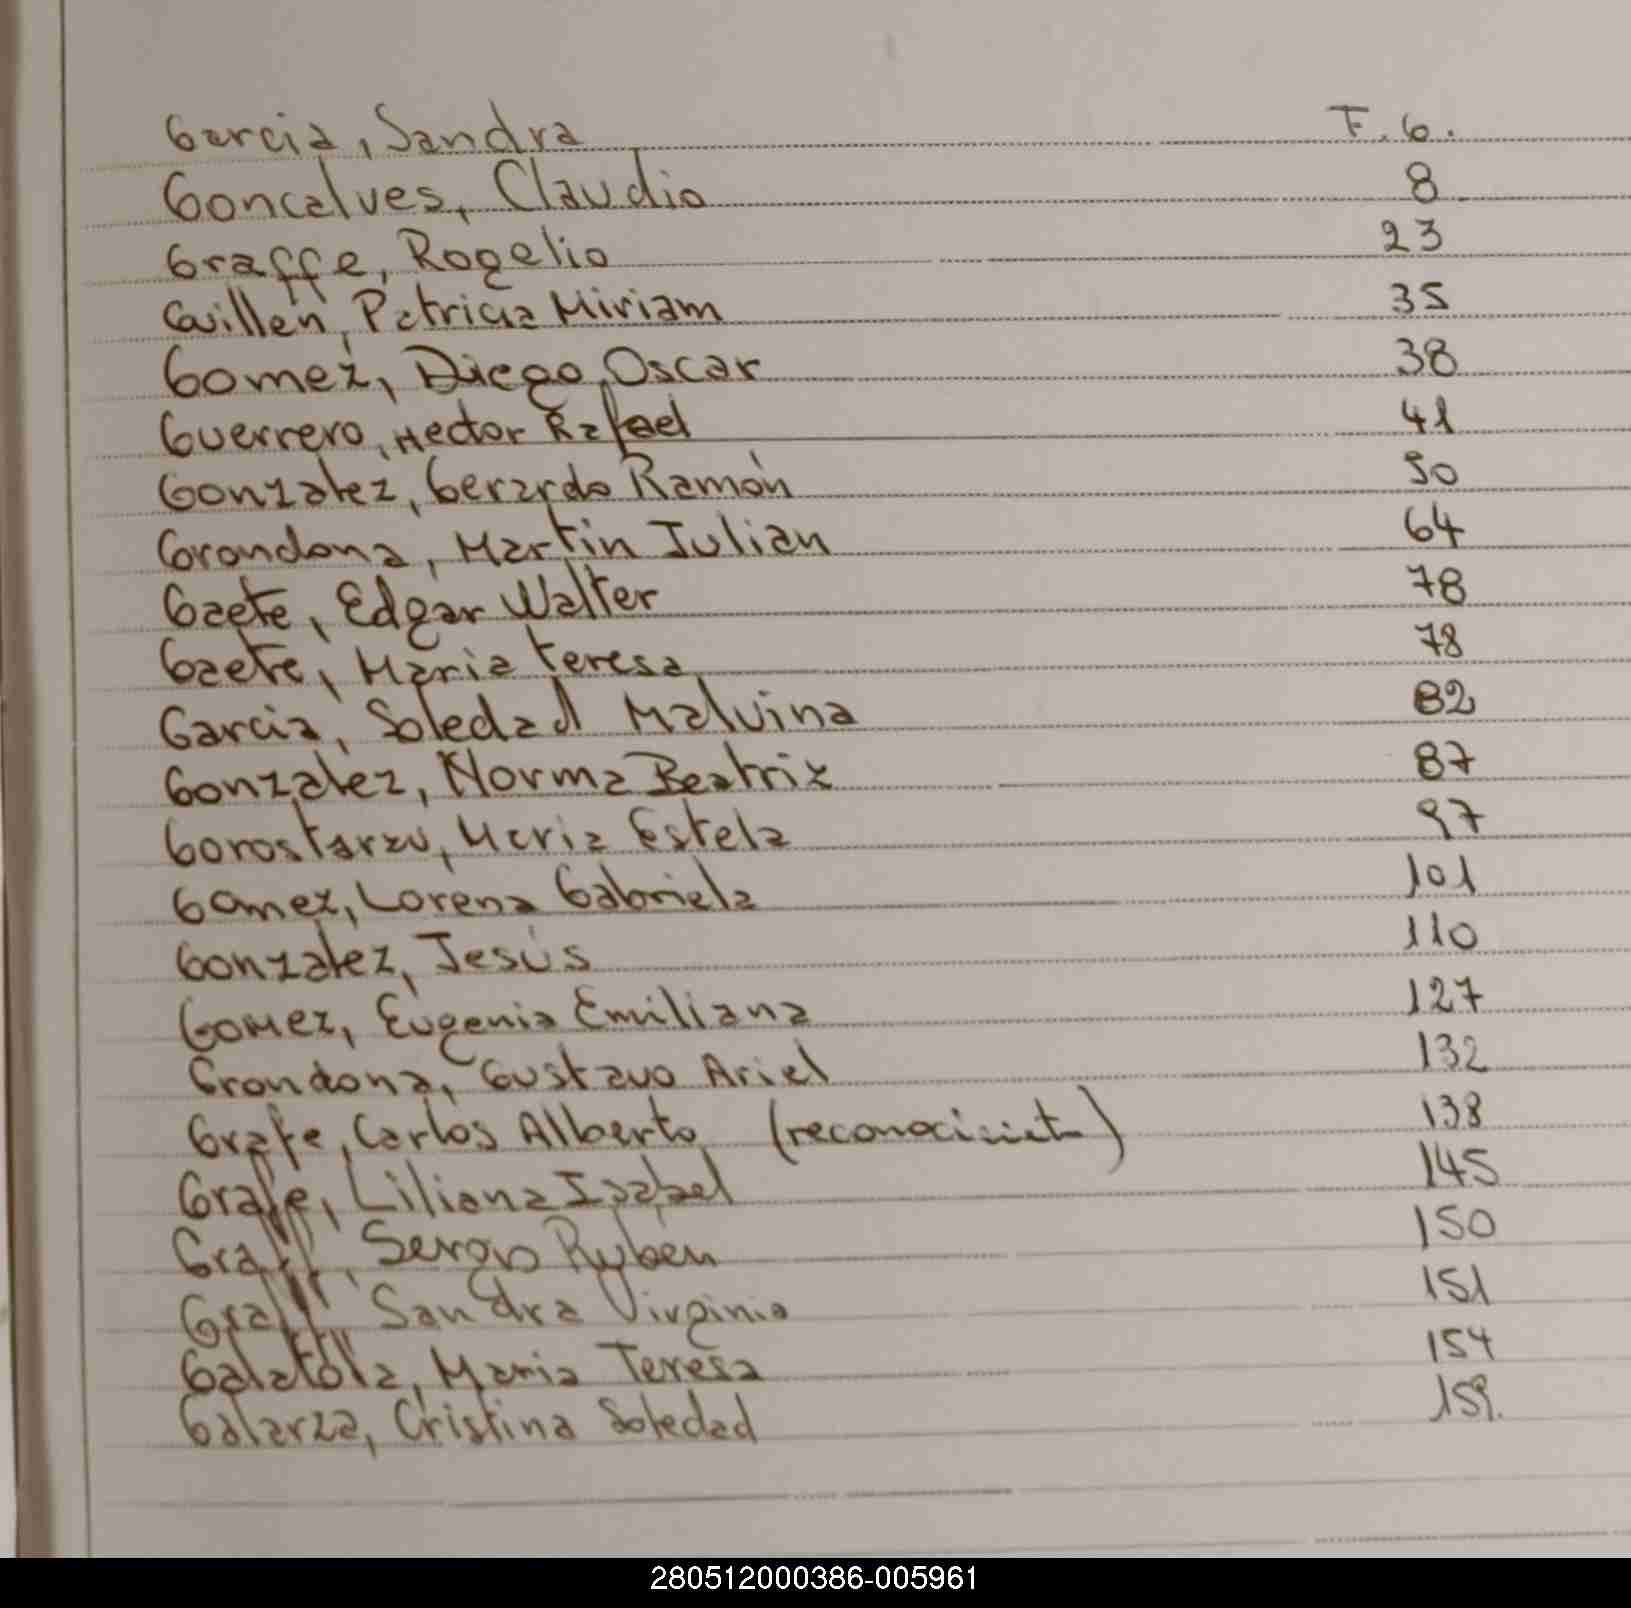 Garcia, Sandra F. 6.
Goncalves, Claudio 8
Graffe, Rogelio 23
Guillen, Patricia Miriam 35
Gomez, Diego Oscar 38
Guerrero, Hector Rafael 41
Gonzalez, Gerardo Ramón 50
Grondona, Martin Julian 64
Gaete, Edgar Walter 78
Gaete, Maria teresa 78
Garcia, Soledad Malvina 82
Gonzalez, Norma Beatriz 87
Gorostarzu, Maria Estela 97
Gamez, Lorena Gabriela 101
Gonzalez, Jesús 110
Gomez, Eugenia Emiliana 127
Grondona, Gustavo Ariel 132
Grafe, Carlos Alberto 138
Grafe, Liliana Isabel 145
Sergio Ruben 150
Sandra Virginia 151
Galatola, Maria Teresa 154
Galarza, Cristina Soledad 159.
280512000386-005961